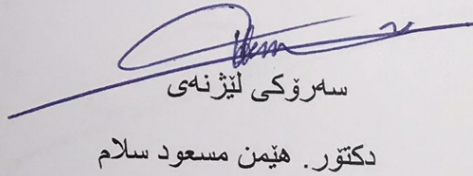 سەرۆکی لێژنەی
دکتۆر. هێمن مسعود سلام